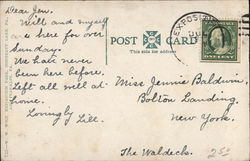 Dear Jen.
Will and myself
are here for over
Sunday.
We have never
been here before.
Left all well at
home.
Lovingly Lill.
POST CARD
EXPOSITI
Miss Jennie Baldwin,
Bolton Landing,
New York.
The Waldecks.
25¢